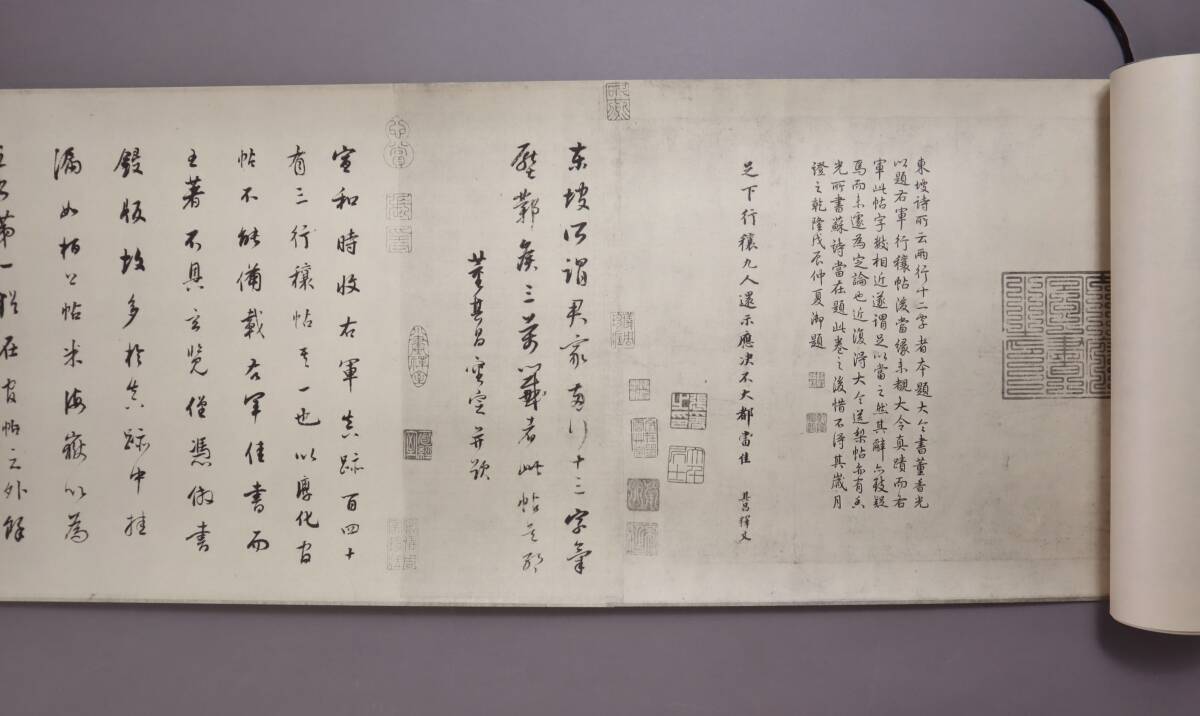 東坡詩所云兩行十二字者本題大令書董香光
以題右軍行穰帖後當緣未覩大令真蹟而右
軍此帖字數相近遂謂足以當之然其辭亦疑
焉而未遽為定論也近復得大令送梨帖亦有香
光所書蘇詩當在題此卷之後惜不得其歲月
證之乾隆戊辰仲夏御題
足下行穰九人還示應決不大都當佳 其昌釋文
東坡所謂君家兩行十三字氣
壓鄴侯三萬籤者此帖是耶
董其昌審定并題
宣和時收右軍真跡百四十
有三行穰帖其一也以淳化官
帖不能備載右軍佳書而
王著不具玄覽僅憑倣書
鋟版故多於真跡中挂
漏如柏公帖米海嶽以為
王書第一猶在官帖之外餘